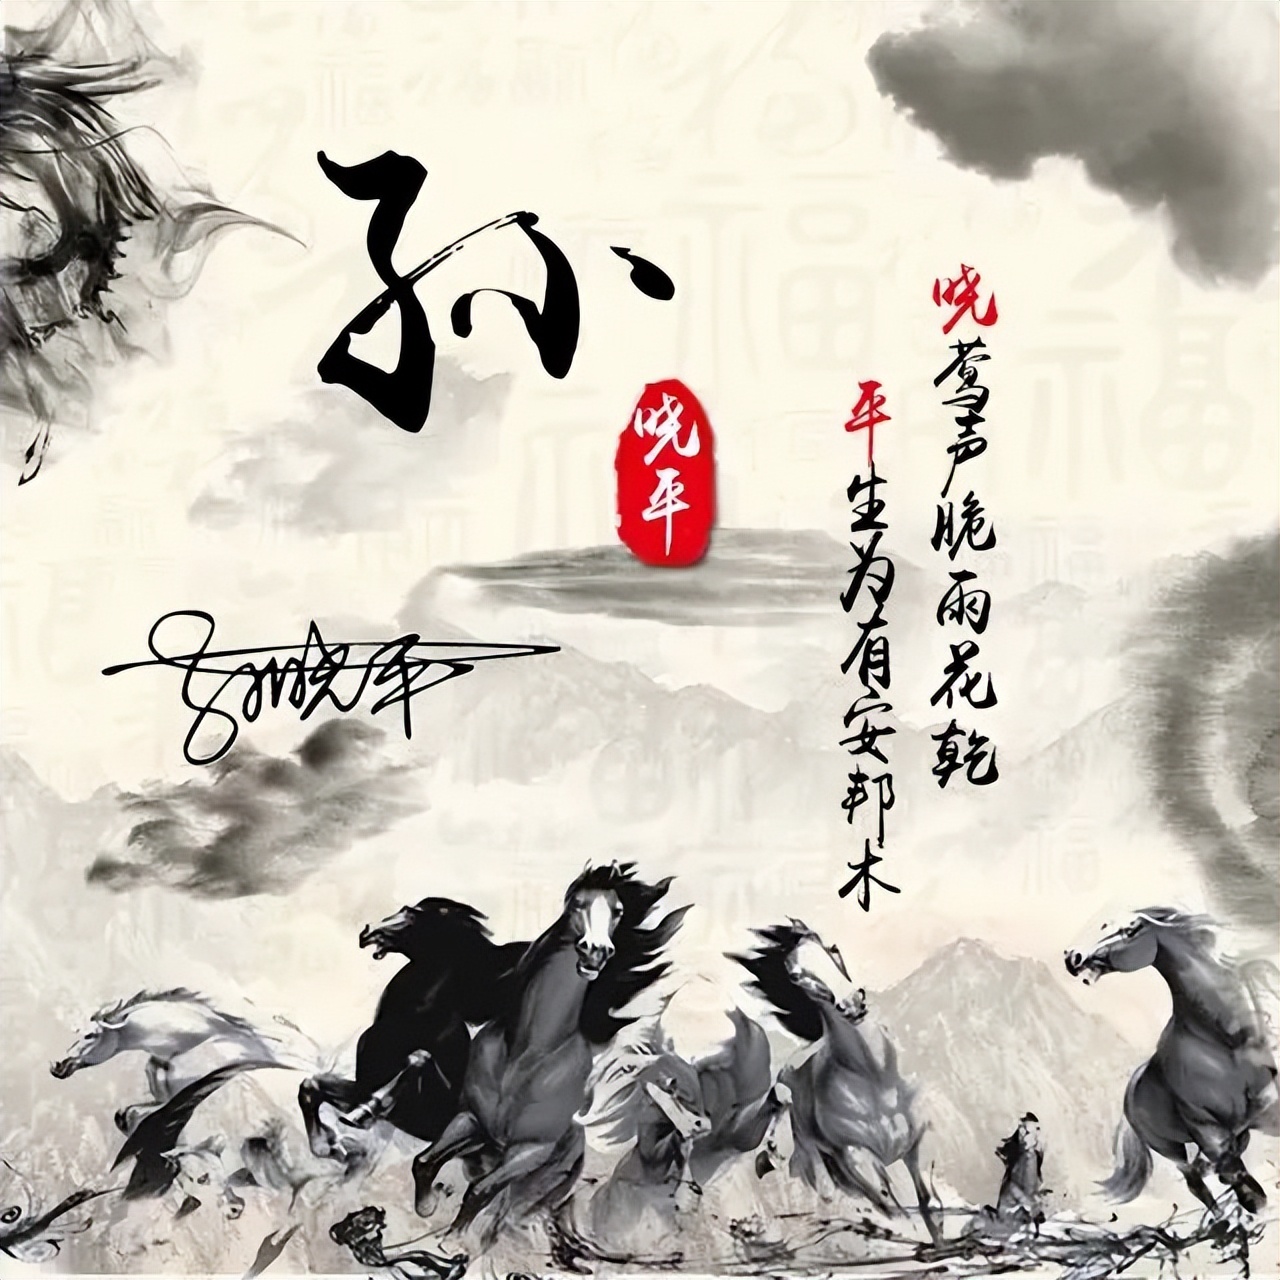 孙
晓平
晓莺声脆雨花乾
平生为有安邦木
孙晓平
福